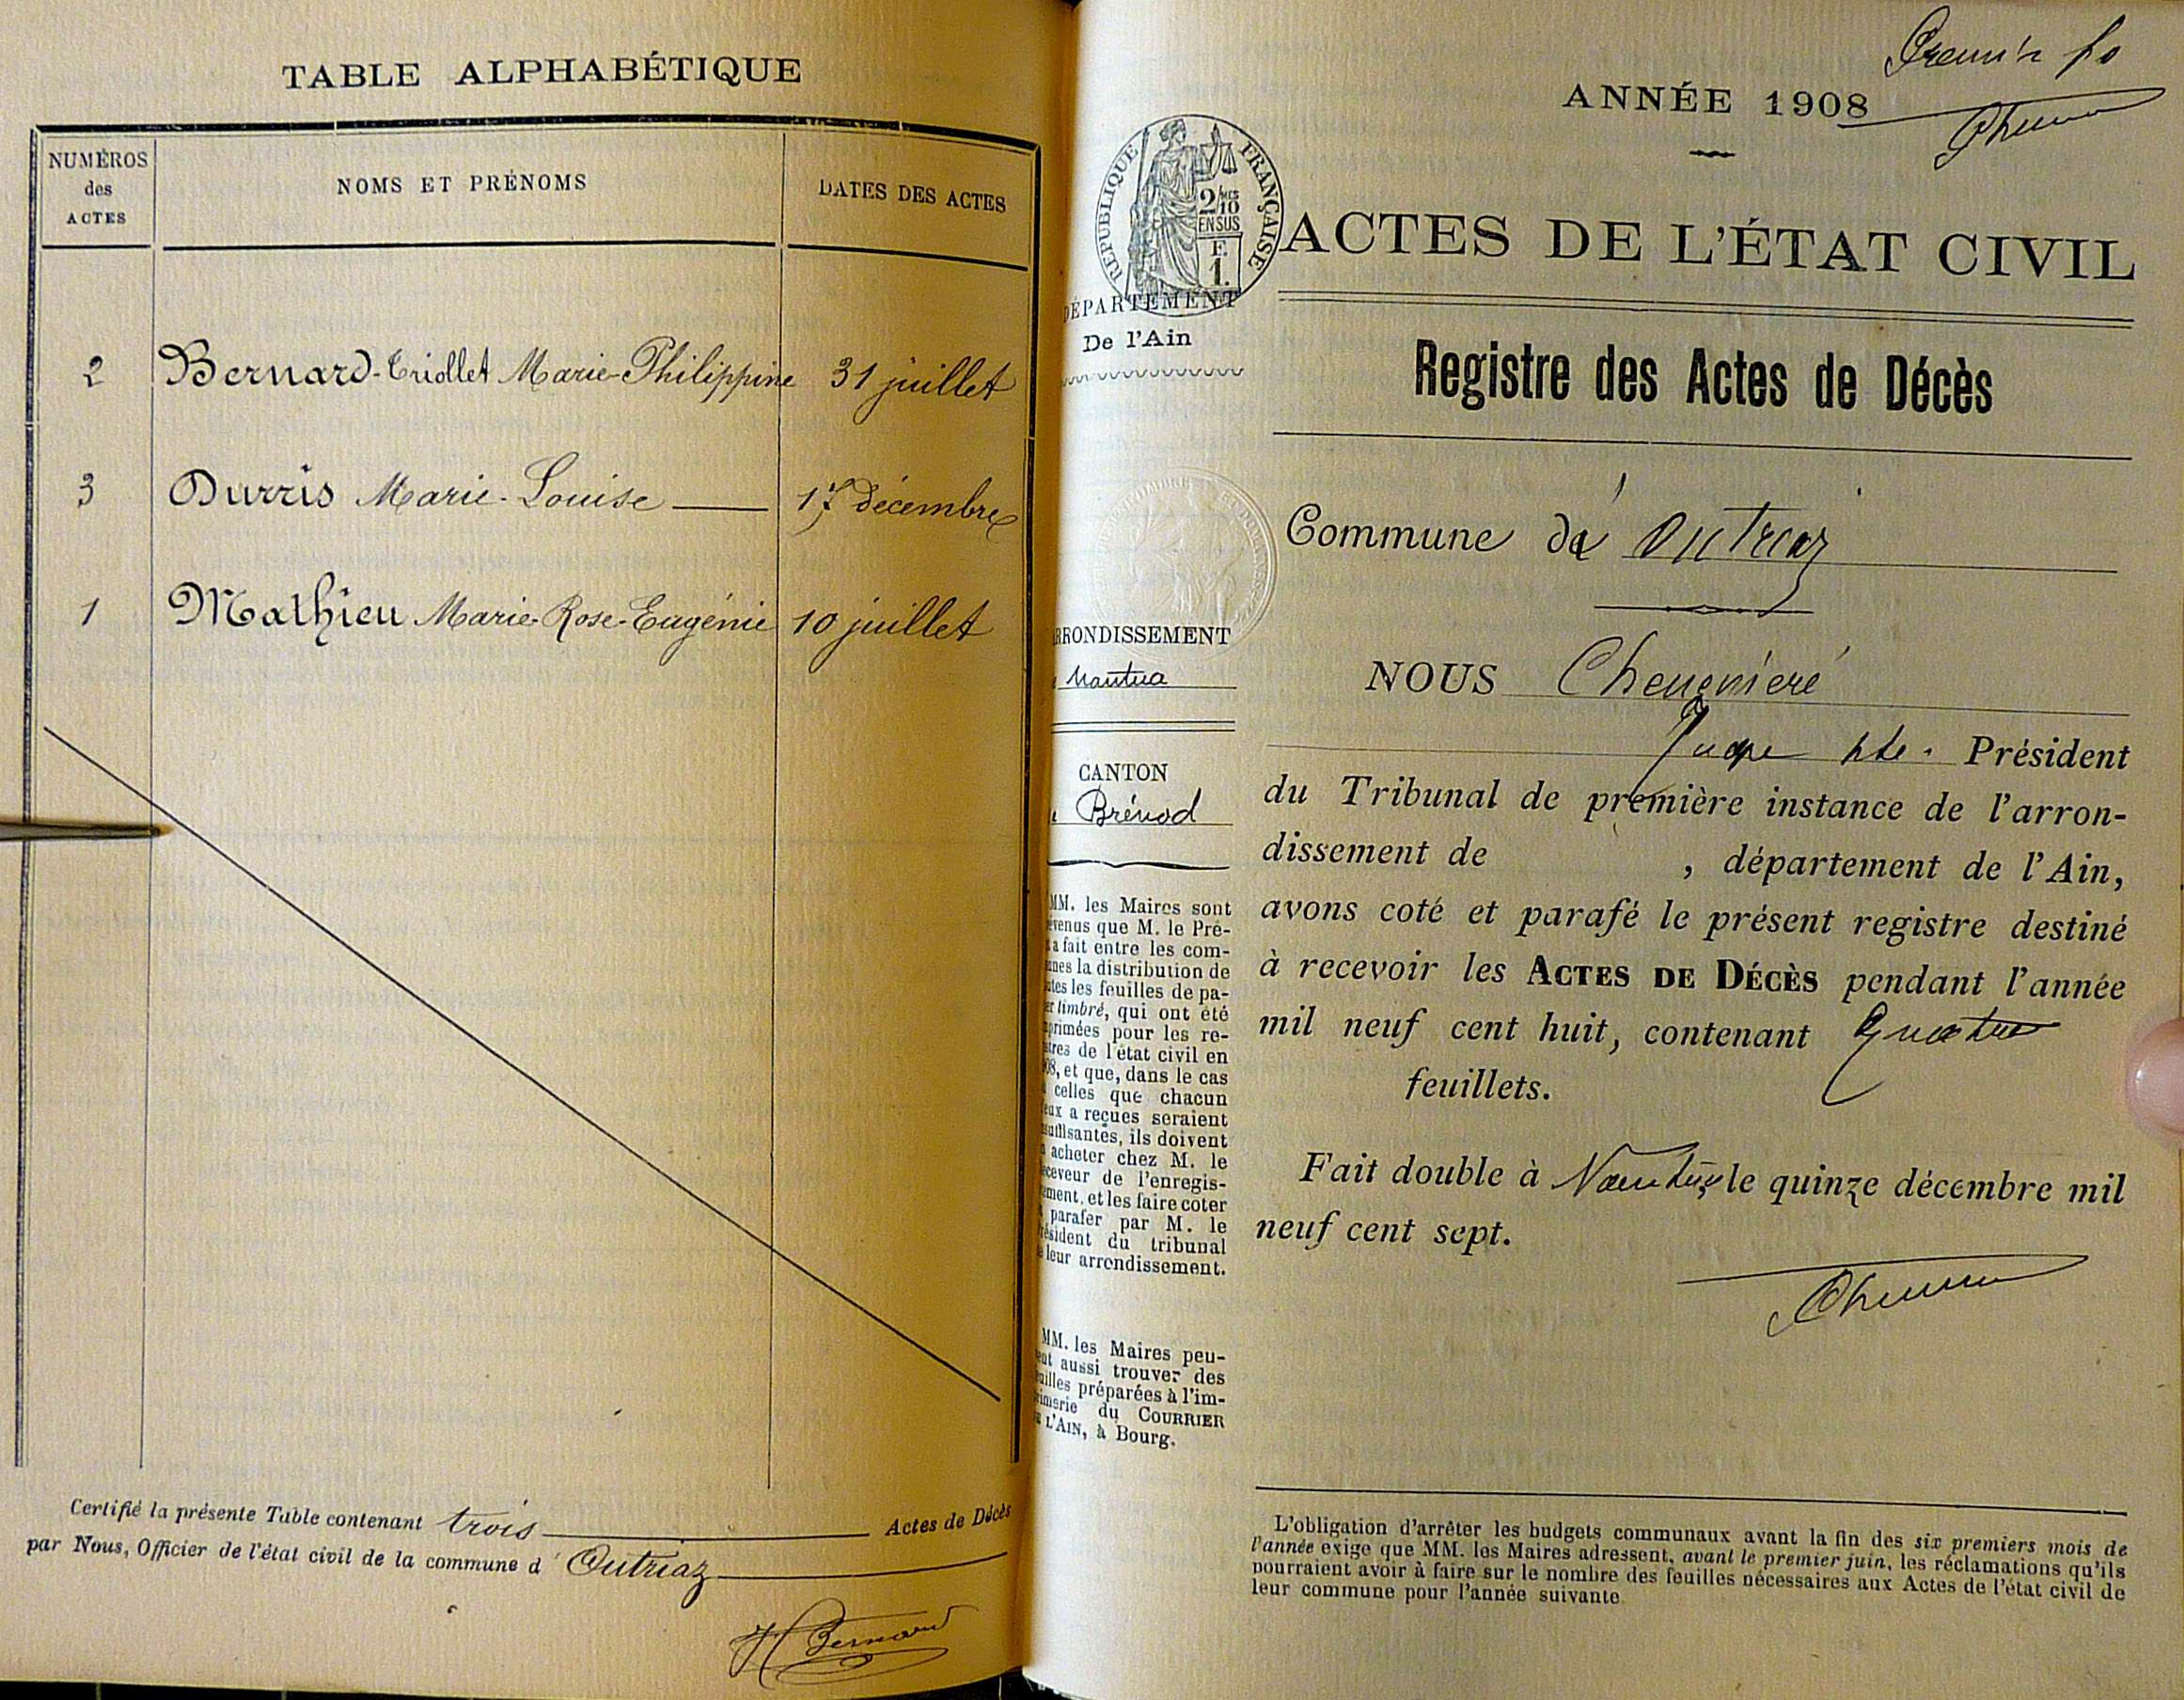 TABLE ALPHABÉTIQUE
NUMÉROS
des
ACTES
NOMS ET PRÉNOMS
DATES DES ACTES
2 Bernard-Triollet Marie-Philippine 31 juillet
3 Durris Marie-Louise 17 décembre
1 Mathieu Marie-Rose-Eugénie 10 juillet
Certifié la présente Table contenant trois Actes de Décès
par Nous, Officier de l'état civil de la commune d' Outriaz
H Bernard
ANNÉE 1908
RÉPUBLIQUE FRANÇAISE
2/10
EN SUS
E.
1.
ACTES DE L'ÉTAT CIVIL
DÉPARTEMENT
De l'Ain
Registre des Actes de Décès
Commune d' Outriaz
ARRONDISSEMENT
Nantua
NOUS
CANTON
Brénod
Juge Président
du Tribunal de première instance de l'arron-
dissement de , département de l'Ain,
avons coté et parafé le présent registre destiné
à recevoir les ACTES DE DÉCÈS pendant l'année
mil neuf cent huit, contenant Quatre
feuillets.
Fait double à Nantua le quinze décembre mil
neuf cent sept.
MM. les Maires sont
evenus que M. le Pré-
a fait entre les com-
unes la distribution de
utes les feuilles de pa-
er timbré, qui ont été
primées pour les re-
stres de l'état civil en
08, et que, dans le cas
celles que chacun
eux a reçues seraient
suffisantes, ils doivent
acheter chez M. le
eceveur de l'enregis-
ement, et les faire coter
parafer par M. le
résident du tribunal
e leur arrondissement.
MM. les Maires peu-
ent aussi trouver des
uilles préparées à l'im-
rimerie du COURRIER
E L'AIN, à Bourg.
L'obligation d'arrêter les budgets communaux avant la fin des six premiers mois de
l'année exige que MM. les Maires adressent, avant le premier juin, les réclamations qu'ils
pourraient avoir à faire sur le nombre des feuilles nécessaires aux Actes de l'état civil de
leur commune pour l'année suivante.